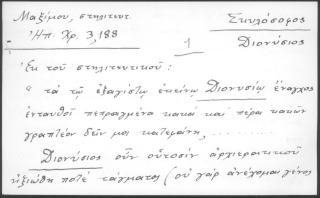 Μαξίμου, στηλιτευτ.
Ἠπ. Χρ. 3, 188
Σκυλόσοφος
Διονύσιος
1
Ἐκ τοῦ στηλιτευτικοῦ:
"τὰ τῷ ἐξαγίστῳ ἐκείνῳ Διονυσίῳ ἔναγχος
ἐνταυθοῖ πεπραγμένα κακὰ καὶ πέρα κακῶν
γραπτέον δεῖν μοι κατεφάνη, ..........
Διονύσιος οὖν οὑτοσὶν ἀρχιερατικοῦ
ἠξιώθη ποτὲ τάγματος (οὐ γὰρ ἀνέχομαι γένος